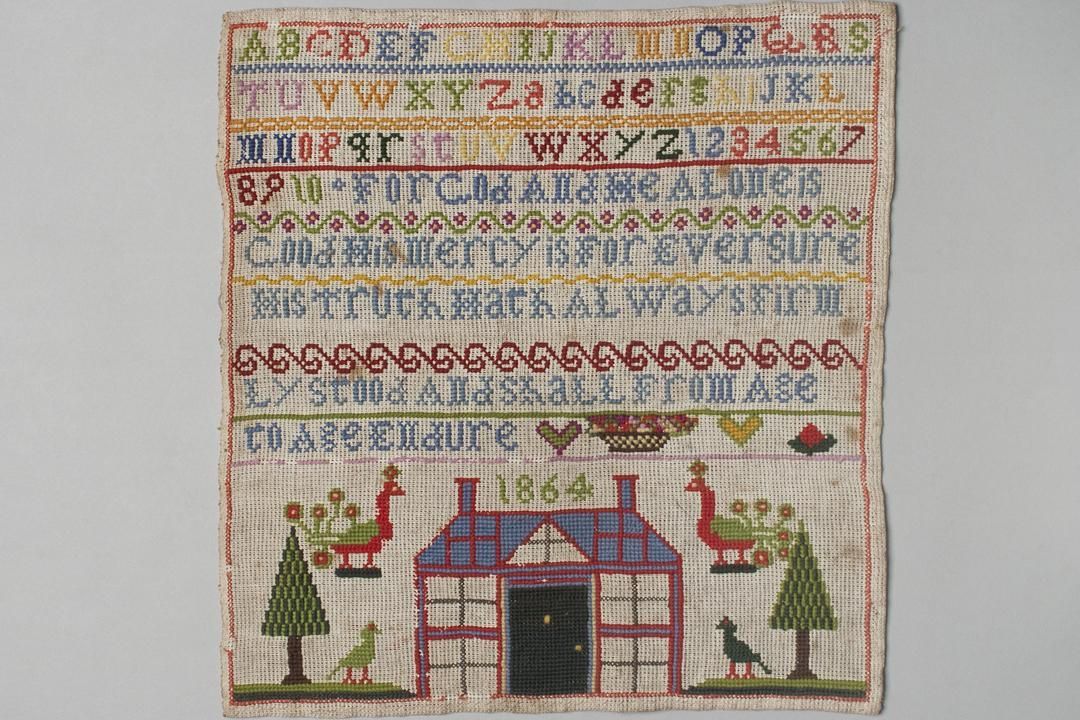 ABCDEFGHIJKLMNOPQRS
TUVWXYZabcdefghiJKL
mnopqrstuvwxyz1234567
8910·For God And He ALone is
Good His mercy is For Ever sure
His Truth Hath ALways Firm
Ly stood And shall From Age
to Age Endure
1864